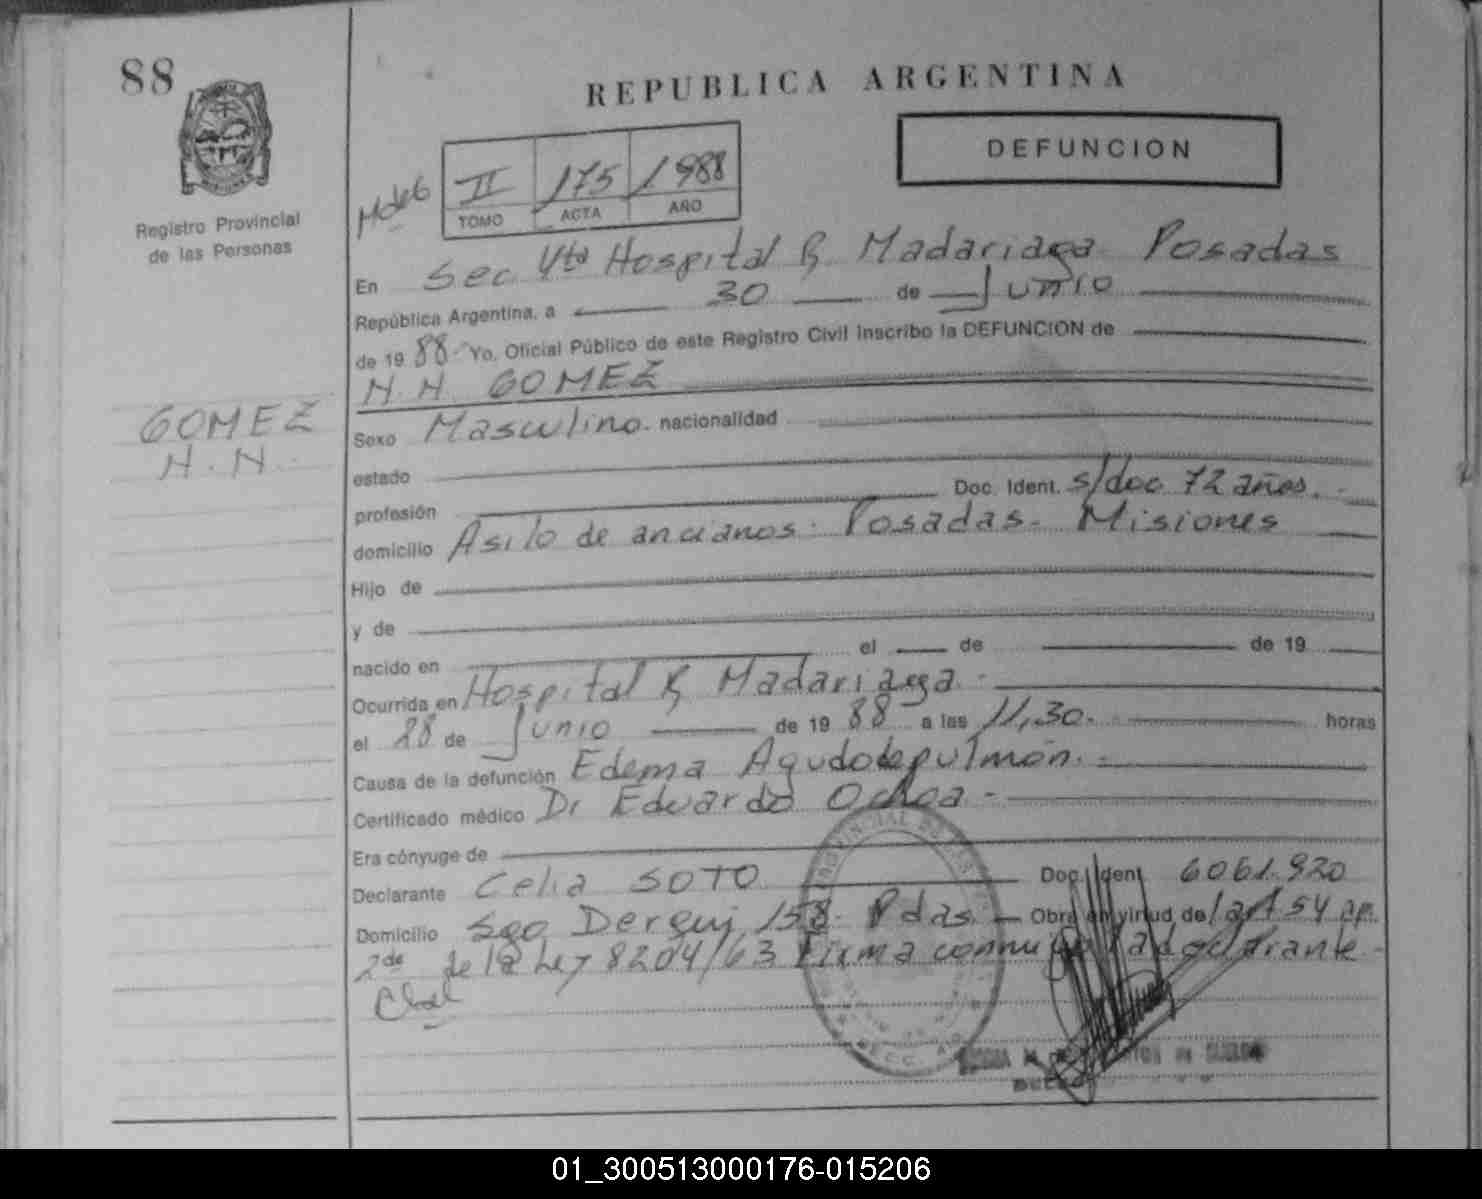 88
REPUBLICA ARGENTINA
DEFUNCION
II 175 1988
TOMO ACTA AÑO
Registro Provincial
de las Personas
En Sec 4ta Hospital R Madariaga Posadas
República Argentina, a 30 de Junio
de 19 88.- Yo, Oficial Público de este Registro Civil inscribo la DEFUNCION de
N.N. GOMEZ
GOMEZ
N.N.
Sexo Masculino. nacionalidad
estado
profesión Doc. Ident. s/doc 72 años.-
domicilio Asilo de ancianos. Posadas. Misiones
Hijo de
y de
nacido en el de de 19
Ocurrida en Hospital R Madariaga.-
el 28 de Junio de 19 88 a las 11,30.- horas
Causa de la defunción Edema Agudo de pulmón.-
Certificado médico Dr Eduardo Ochoa.-
Era cónyuge de
Declarante Celia SOTO Doc. Ident 6061.920
Domicilio Sgo Derqui 158. Pdas. Obra en virtud de art 54 ap.
2do de la Ley 8204/63 Firma conmigo la declarante.-
01_300513000176-015206